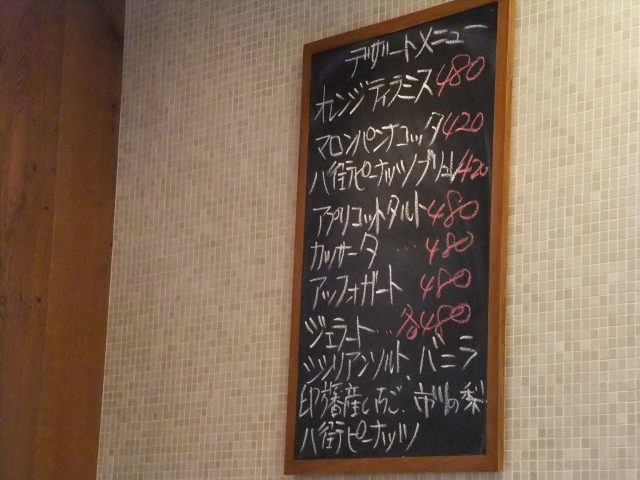 デザートメニュー
オレンジティラミス480
マロンパンナコッタ420
八街ピーナッツブリュレ420
アプリコットタルト480
カッサータ…480
アッフォガート480
ジェラート…各480
シシリアンソルト、バニラ
印旛産いちご、市川の梨
八街ピーナッツ